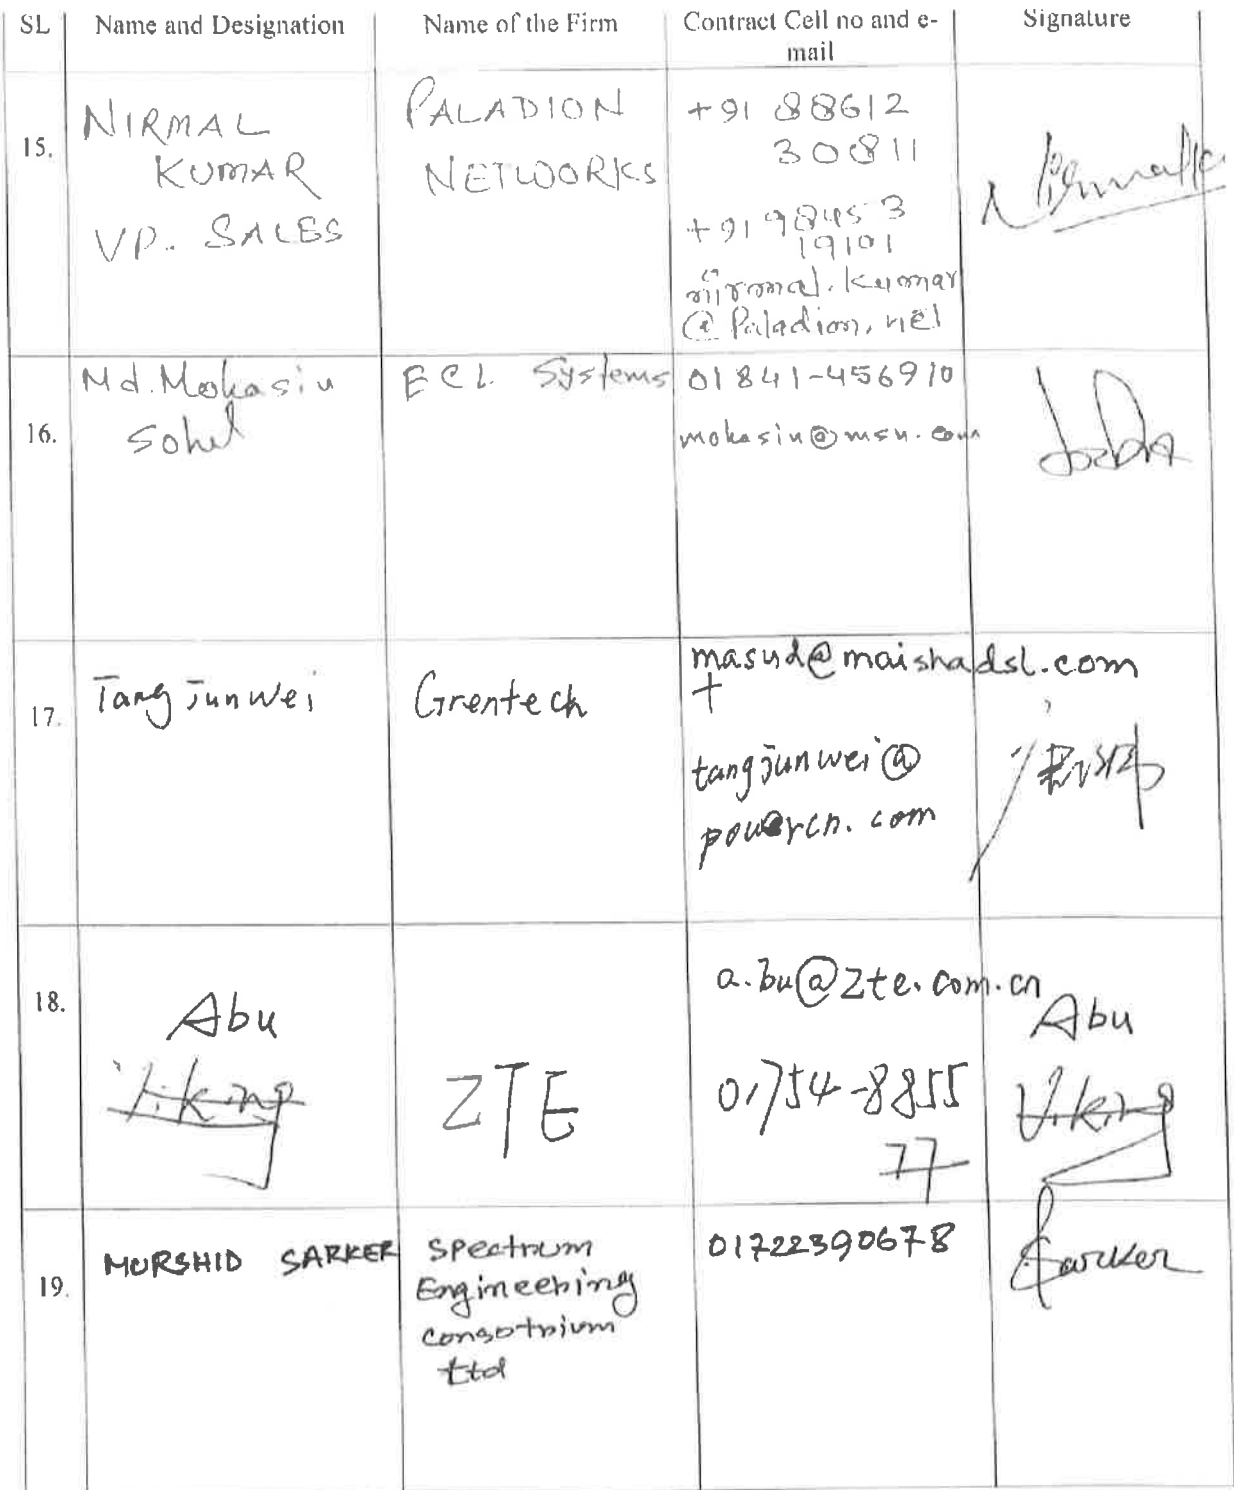 SL Name and Designation Name of the Firm Contract Cell no and e-
mail Signature
15. NIRMAL
KUMAR
VP. SALES
PALADION
NETWORKS
+91 88612
30811
+91 98453
19101
nirmal.kumar
@Paladion.net
16. Md. Mohasin
Sohel
ECL Systems
01841-456910
mohasin@msn.com
17. Tang Junwei
Grentech
masud@maishadsl.com
+
tangjunwei@
powercn.com
18. Abu
Viking
ZTE
a.bu@zte.com.cn
01754-8855
77
Abu
Viking
19. MURSHID SARKER
Spectrum
Engineering
Consotrium
Ltd
01722390678
Sarker